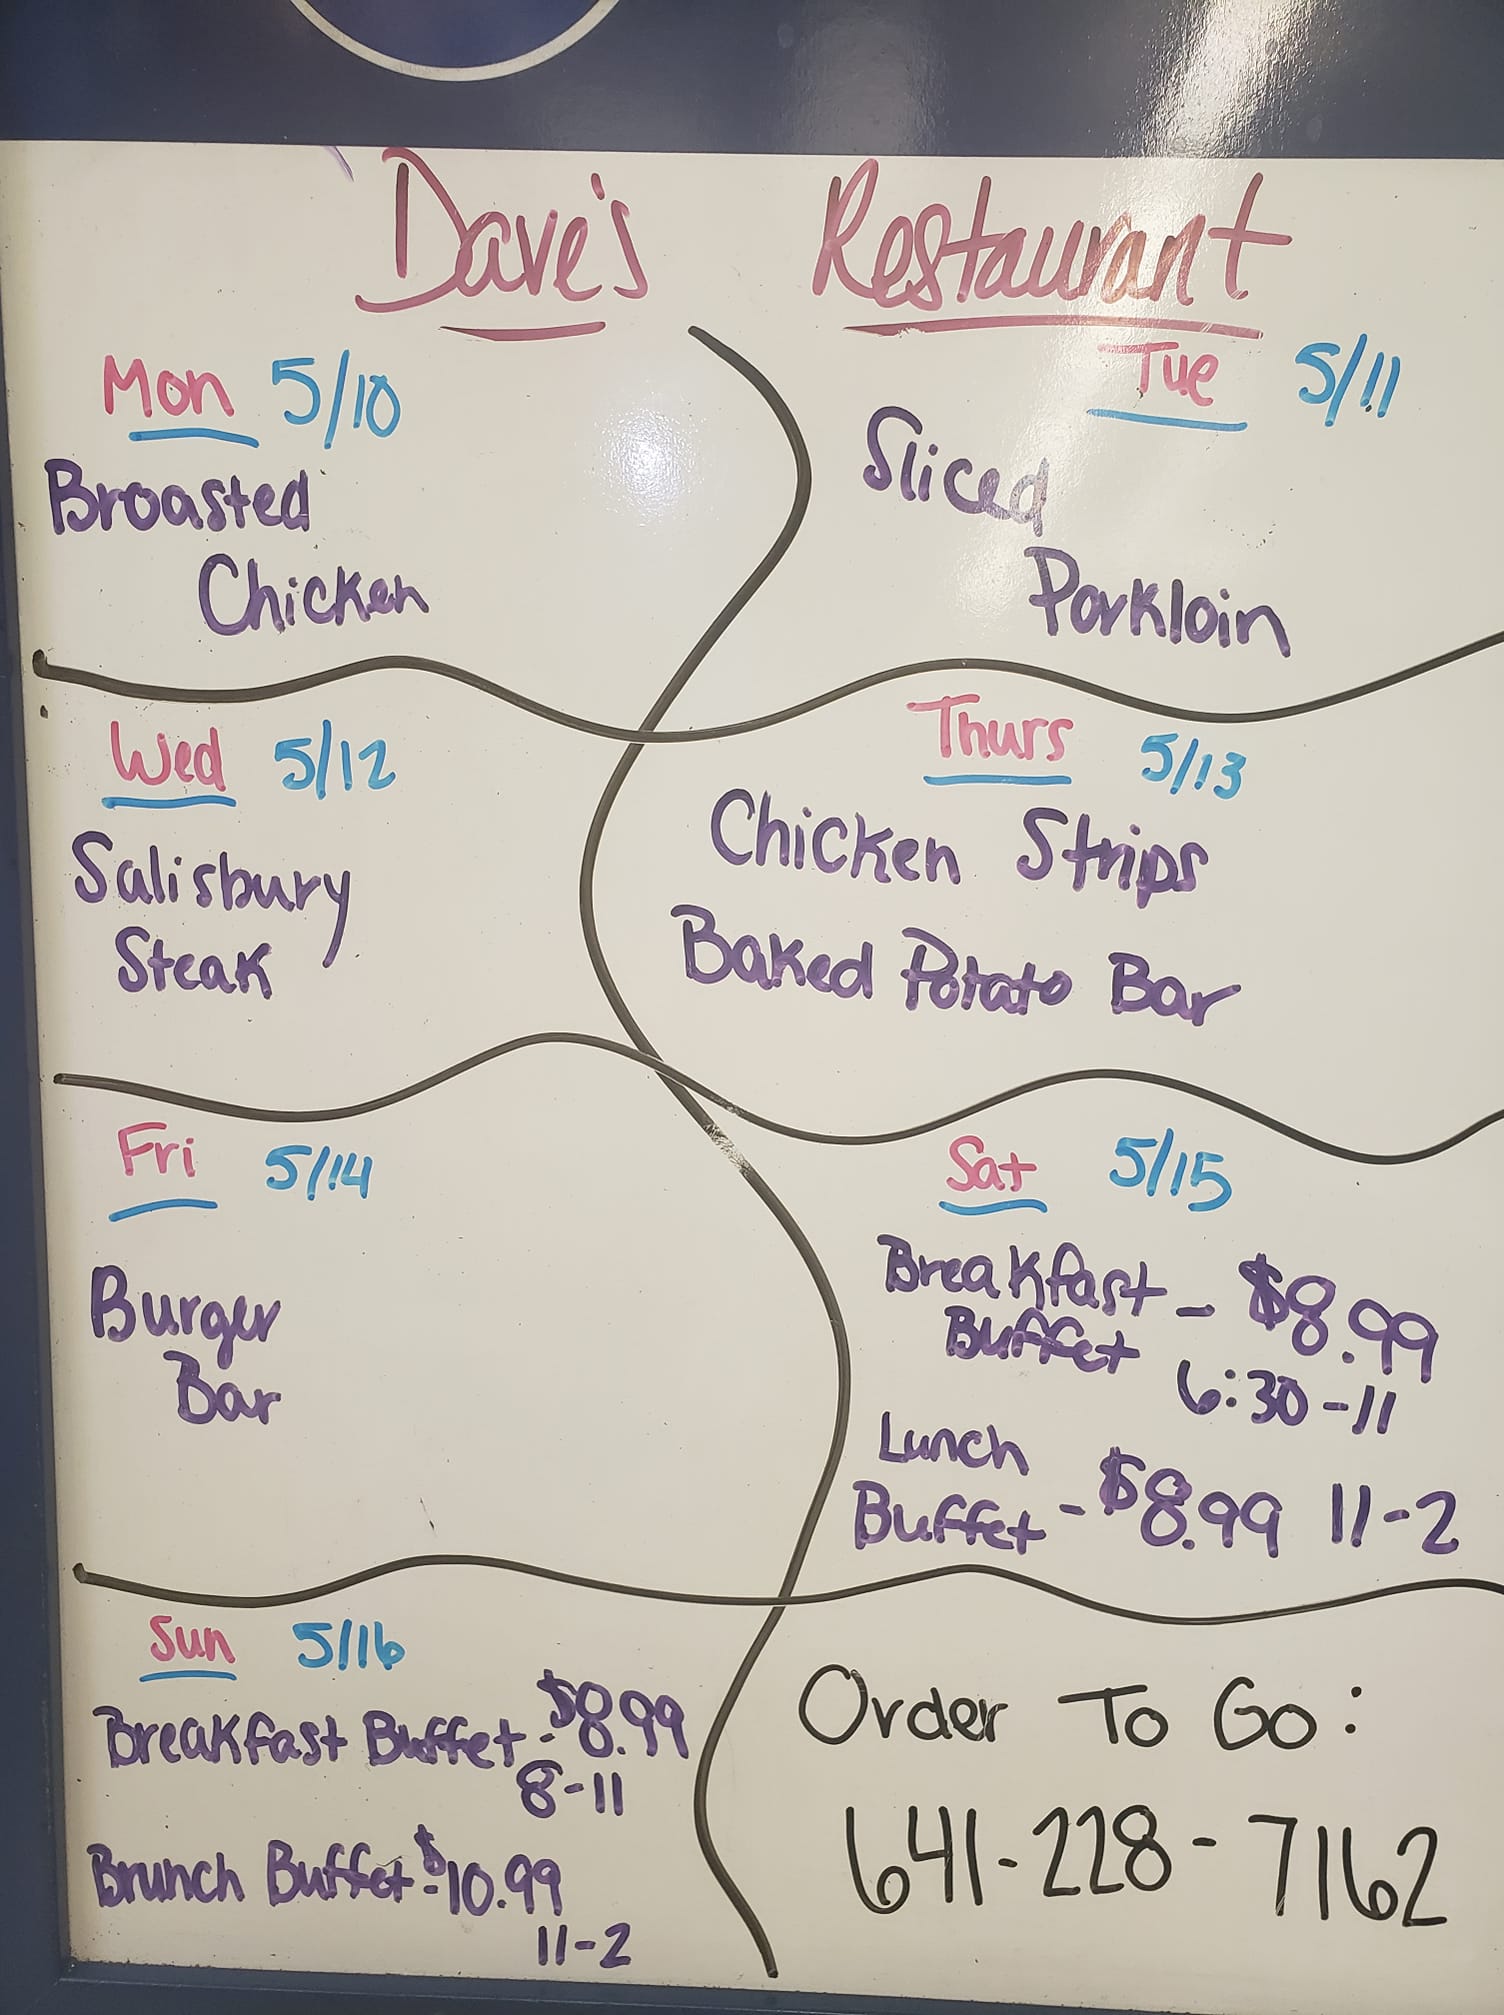 Dave's Restaurant
Mon 5/10
Broasted
Chicken
Tue 5/11
Sliced
Porkloin
Wed 5/12
Salisbury
Steak
Thurs 5/13
Chicken Strips
Baked Potato Bar
Fri 5/14
Burger
Bar
Sat 5/15
Breakfast - $8.99
Buffet 6:30-11
Lunch
Buffet - $8.99 11-2
Sun 5/16
Breakfast Buffet - $8.99
8-11
Brunch Buffet - $10.99
11-2
Order To Go:
641-228-7162